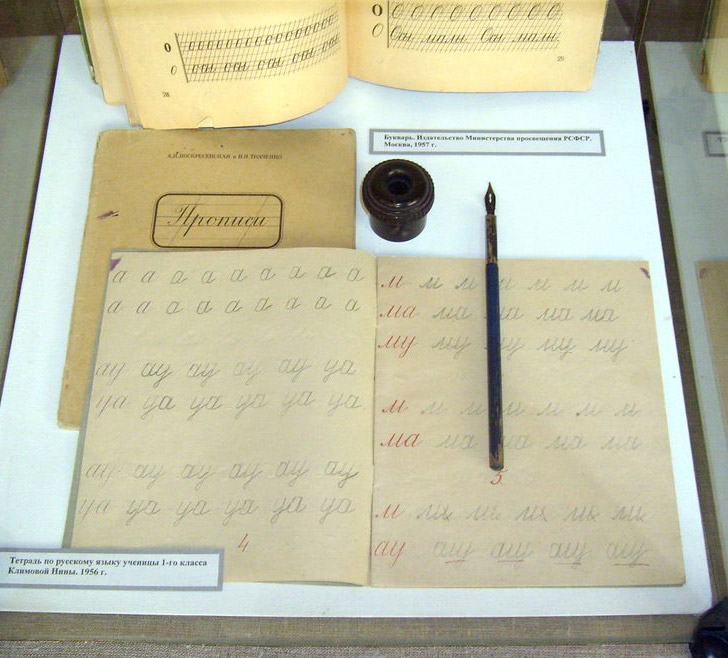 О О О О О О О О О О О О О
О Осы Осы Осы Осы
28
О О О О О О О О О
О Осы малы. Осы малы.
29
Букварь. Издательство Министерства просвещения РСФСР.
Москва, 1957 г.
Прописи
а а а а а а а а а
а а а а а а а а а
ау ау ау ау ау уа
уа уа уа уа уа уа
ау ау ау ау ау ау
уа уа уа уа уа уа
4
м м м м м м м
ма ма ма ма ма
му му му му му
м м м м м м м
ма ма ма ма ма
5
м
ау ау ау ау ау
Тетрадь по русскому языку ученицы 1-го класса
Климовой Нины. 1956 г.